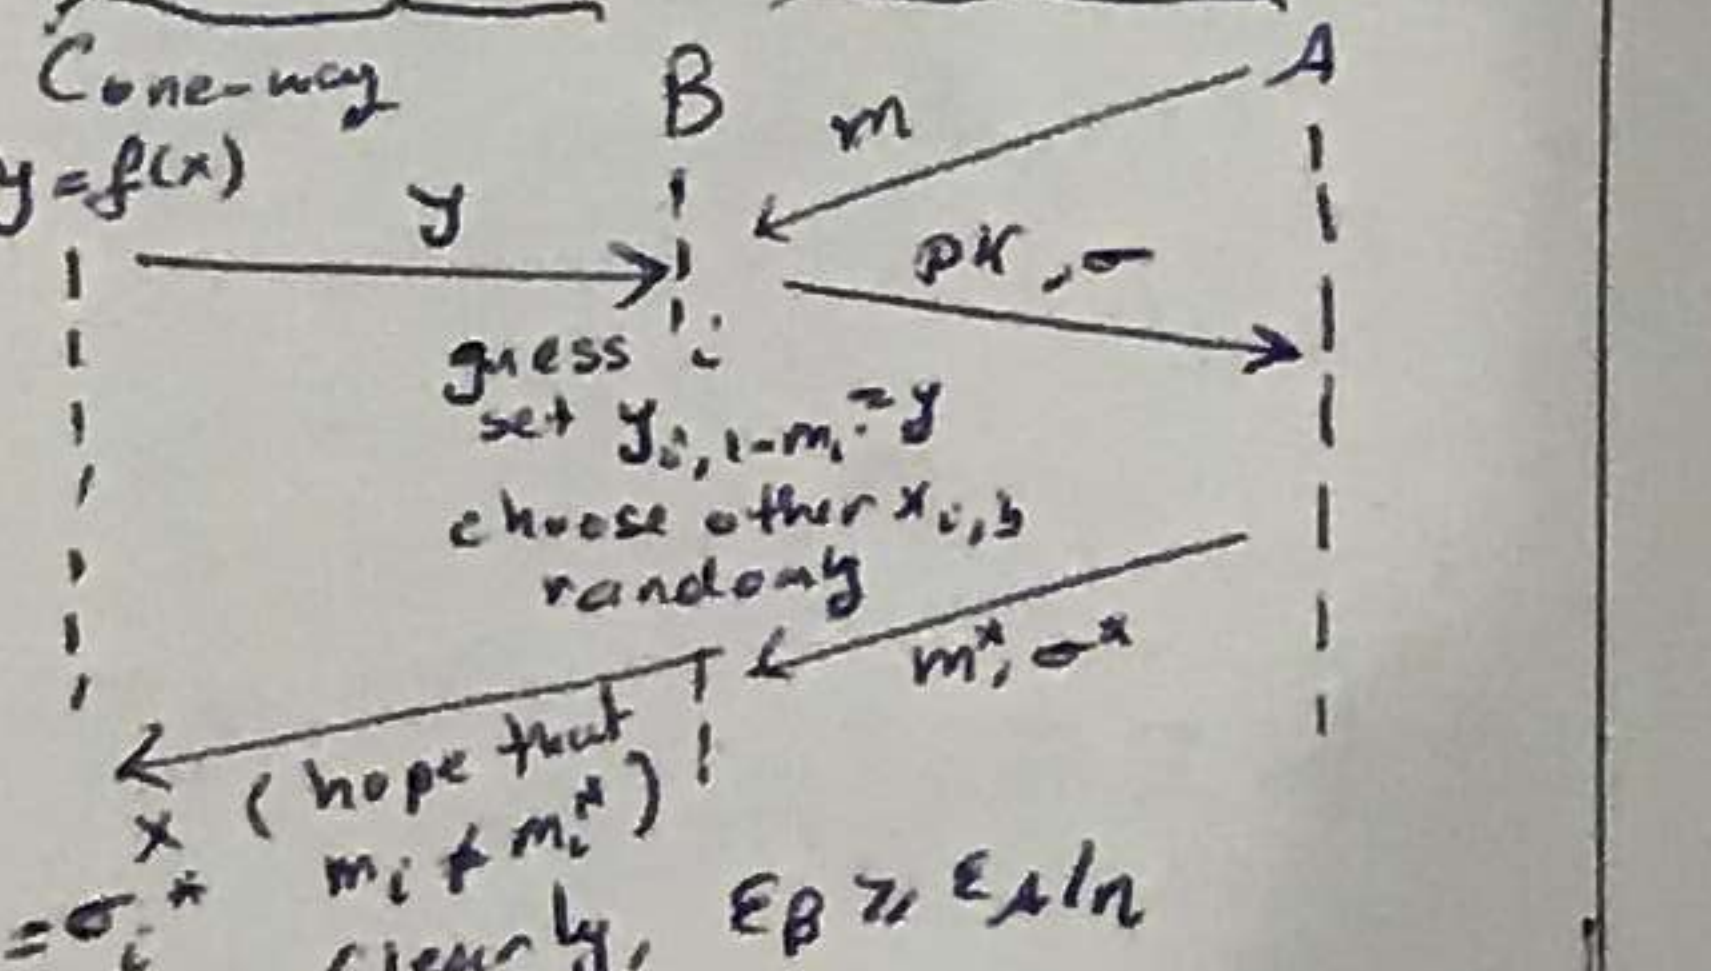 C one-way
B
A
y = f(x)
y
m
pk, σ
guess i
set y_{i, 1-m_i} = y
choose other x_{i,b}
randomly
m*, σ*
x (hope that
= σ_i* m_i ≠ m_i*)
clearly, ε_B ≥ ε_A/n